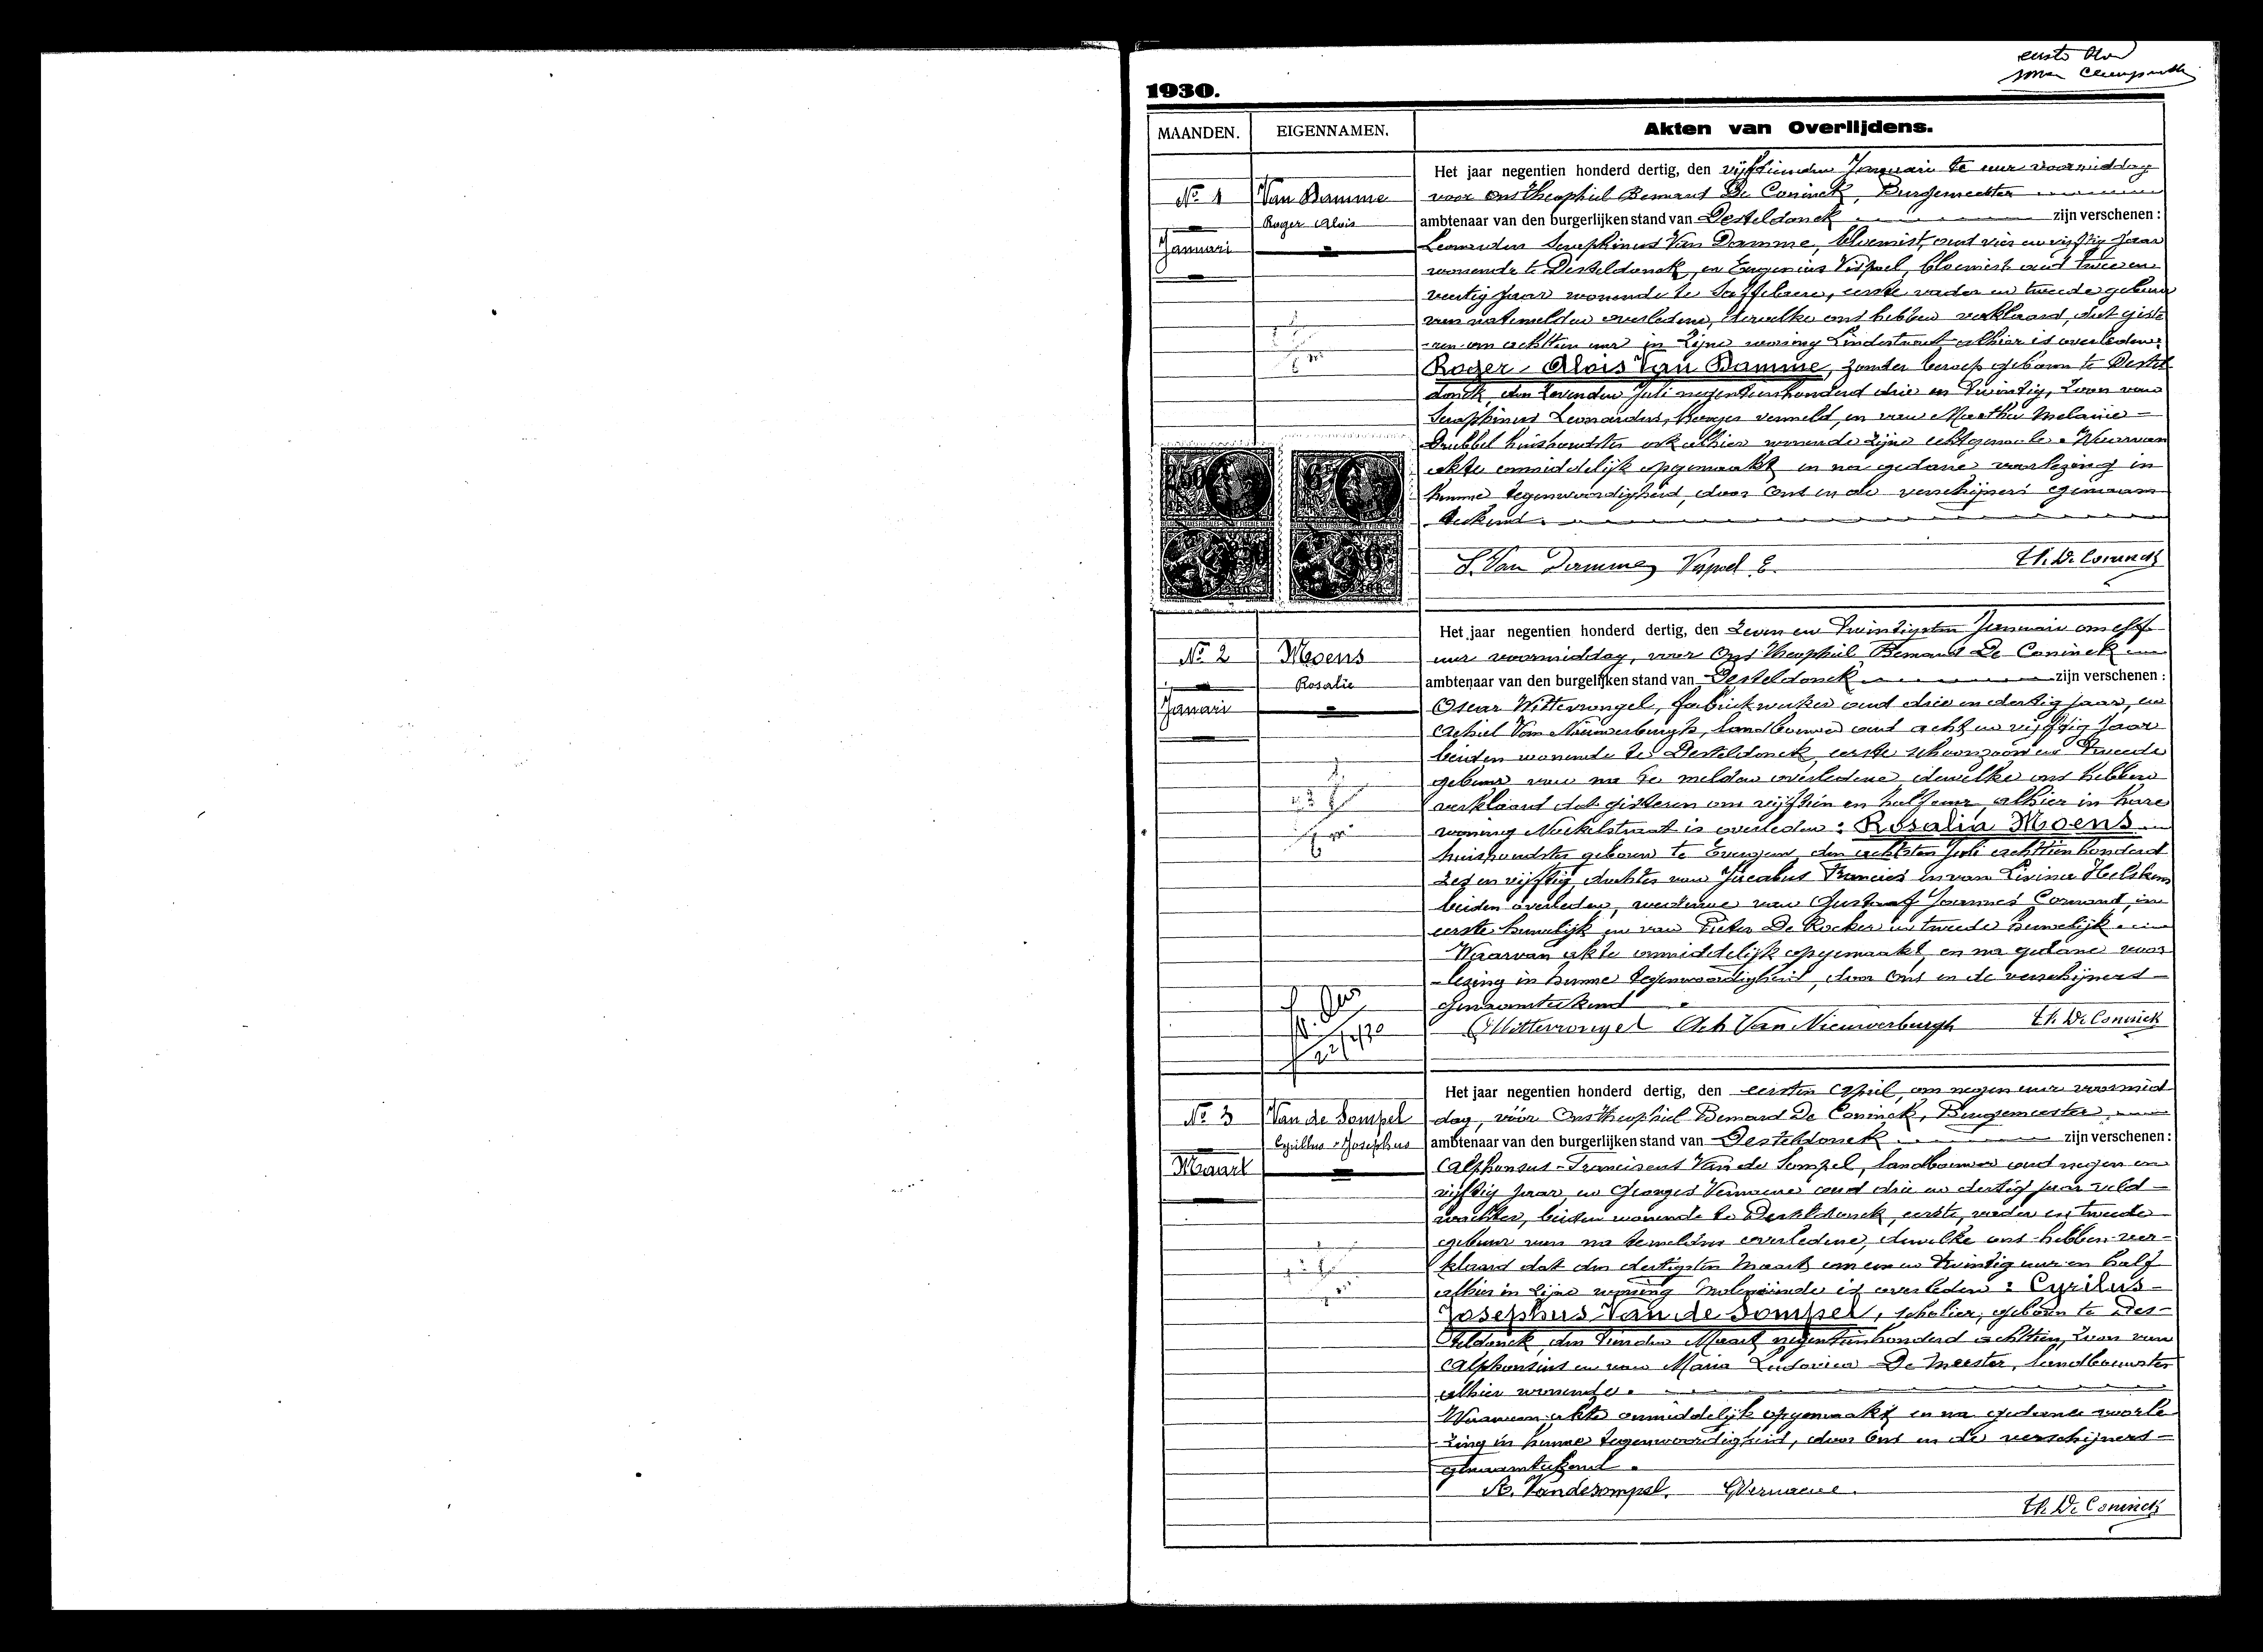 1930.
MAANDEN. EIGENNAMEN. Akten van Overlijdens.
No 1
Januari
Van Damme
Roger Alois
Het jaar negentien honderd dertig, den vijftienden Januari te uur voormiddag
voor ons Theophiel Bernard De Coninck, Burgemeester
ambtenaar van den burgerlijken stand van Desteldonck zijn verschenen :
Leonardus Seraphinus Van Damme, bloemist, oud vier en vijftig Jaar
wonende te Desteldonck, en Eugenius Vispoel, bloemist oud twee en
veertig Jaar wonende te Saffelaere, eerste vader en tweede gebuur
van natemelden overledene, dewelke ons hebben verklaard, dat giste
-ren om achttien uur in zijne woning Lindestraat alhier is overleden:
Roger Alois Van Damme, zonder beroep geboren te Destel
donck, den zevenden Juli negentienhonderd drie en twintig, zoon van
Seraphinus Leonardus, hooger vermeld, en van Martha Melanie
Drubbel huishoudster ook alhier wonende zijne echtgenoote. Waarvan
akte onmiddelijk opgemaakt, en na gedane voorlezing in
hunne tegenwoordigheid, door ons en de verschijners genaam
teekend.
S. Van Damme Vispoel E. Th. De Coninck
No 2
Januari
Moens
Rosalie
Het jaar negentien honderd dertig, den zeven en twintigsten Januari om elf
uur voormiddag, voor Ons Theophiel Bernard De Coninck
ambtenaar van den burgelijken stand van Desteldonck zijn verschenen :
Oscar Wittevrongel, fabriekwerker oud drie en dertig jaar, en
Achiel Van Nieuwerburgh, landbouwer oud acht en vijftig Jaar
beiden wonende te Desteldonck, eerste schoonzoon en tweede
gebuur van na te melden overledene, dewelke ons hebben
verklaard dat gisteren om vijftien en half uur alhier in hare
woning is overleden : Rosalia Moens
huishoudster geboren te Evergem den achtsten Juli achttienhonderd
zes en vijftig dochter van Jacobus Francies en van Livina
beiden overleden, weduwe van Gustaaf Joannes in
eerste huwelijk en van Pieter De Rocker in tweede huwelijk.
Waarvan akte onmiddelijk opgemaakt, en na gedane voor
-lezing in hunne tegenwoordigheid, door Ons en de verschijners
genaamteekend
Wittevrongel Ach Van Nieuwerburgh Th. De Coninck
No 3
Maart
Van de Sompel
Cyrillus Josephus
Het jaar negentien honderd dertig, den eersten April, om negen uur voormid
dag, vóór Ons Theophiel Bernard De Coninck, Burgemeester
ambtenaar van den burgerlijken stand van Desteldonck zijn verschenen :
Alphonsus-Franciscus Van de Sompel, landbouwer oud negen en
vijftig jaar, en Georges Vernaeve oud drie en dertig jaar veld
wachter, beiden wonende te Desteldonck, eerste, vader en tweede
gebuur van na temelden overledene, dewelke ons hebben ver-
klaard dat den dertigsten Maart om een en twintig uur en half
alhier in zijne woning Moleneinde is overleden : Cyrilus-
Josephus Van de Sompel, scholier, geboren te Des-
teldonck, den tienden Maart negentienhonderd achttien, zoon van
Alphonsius en van Maria Ludovica De Meester, landbouwster
alhier wonende.
Waarvan akte onmiddelijk opgemaakt en na gedane voorle
-zing in hunne tegenwoordigheid, door Ons en de verschijners
genaamteekend.
A. Vandesompel. G Vernaeve.
Th. De Coninck